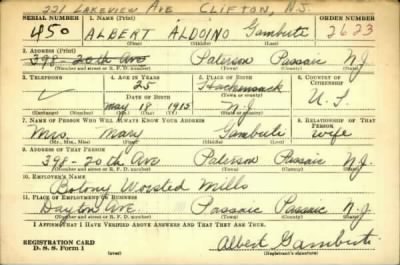 221 LAKEVIEW AVE CLIFTON, N.J.
SERIAL NUMBER 1. NAME (Print) ORDER NUMBER
450 ALBERT ALDOINO Gambuti 2623
(First) (Middle) (Last)
2. ADDRESS (Print)
398-20th Ave Paterson Passaic N.J.
(Number and street or R. F. D. number) (Town) (County) (State)
3. TELEPHONE 4. AGE IN YEARS 5. PLACE OF BIRTH 6. COUNTRY OF CITIZENSHIP
25 Hackensack
(Town or county)
DATE OF BIRTH
May 18 1915 N.J. U.S.
(Exchange) (No.) (Mo.) (Day) (Yr.) (State or country)
7. NAME OF PERSON WHO WILL ALWAYS KNOW YOUR ADDRESS 8. RELATIONSHIP OF THAT PERSON
Mrs. Mary Gambuti wife
(Mr., Mrs., Miss) (First) (Middle) (Last)
9. ADDRESS OF THAT PERSON
398-20th Ave Paterson Passaic N.J.
(Number and street or R. F. D. number) (Town) (County) (State)
10. EMPLOYER'S NAME
Botony Worsted Mills
11. PLACE OF EMPLOYMENT OR BUSINESS
Dayton Ave Passaic Passaic N.J.
(Number and street or R. F. D. number) (Town) (County) (State)
I AFFIRM THAT I HAVE VERIFIED ABOVE ANSWERS AND THAT THEY ARE TRUE.
REGISTRATION CARD
D. S. S. Form 1 (over) Albert Gambuti
(Registrant's signature)